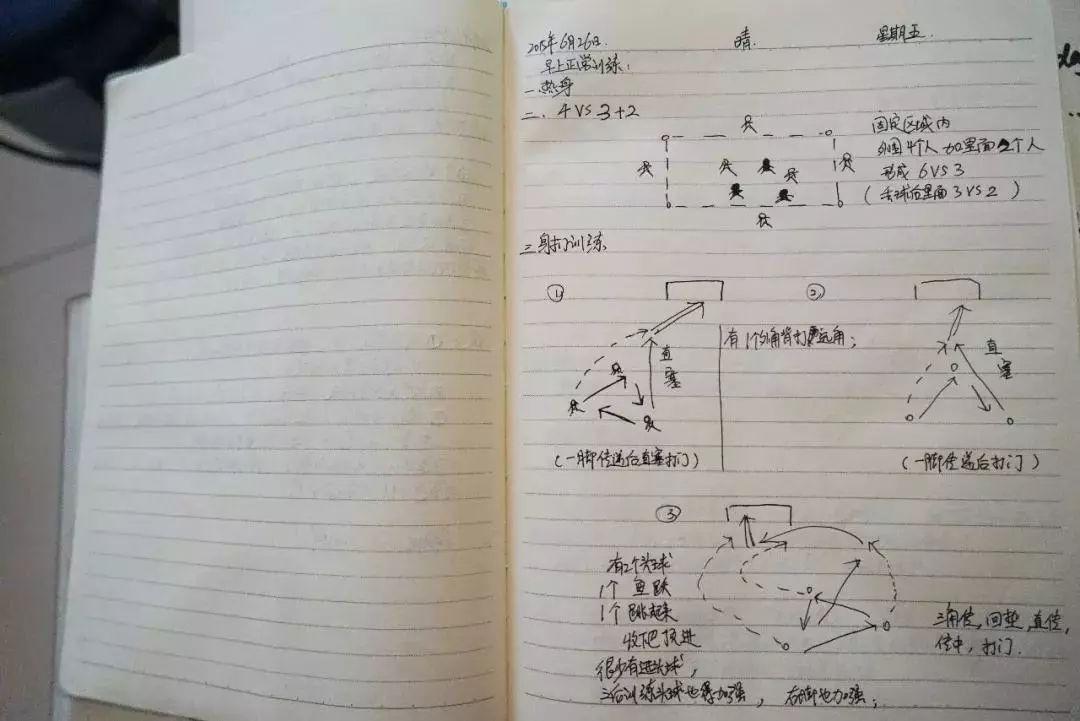 2015年6月26日. 晴. 星期五.
早上正常训练:
一.热身
二. 4 VS 3+2
固定区域内
外围4个人 加里面2个人
形成 6 VS 3
(丢球后里面 3 VS 2)
三.射门训练
①
直塞
(一脚传递后直塞打门)
②
有1个外脚背打远角;
直塞
(一脚传递后打门)
③
有2个头球
1个 鱼跃
1个 跳起来
收下巴顶进
很少有进头球,
三角传,回垫,直传,
传中,打门.
以后训练头球也得加强, 右脚也加强;